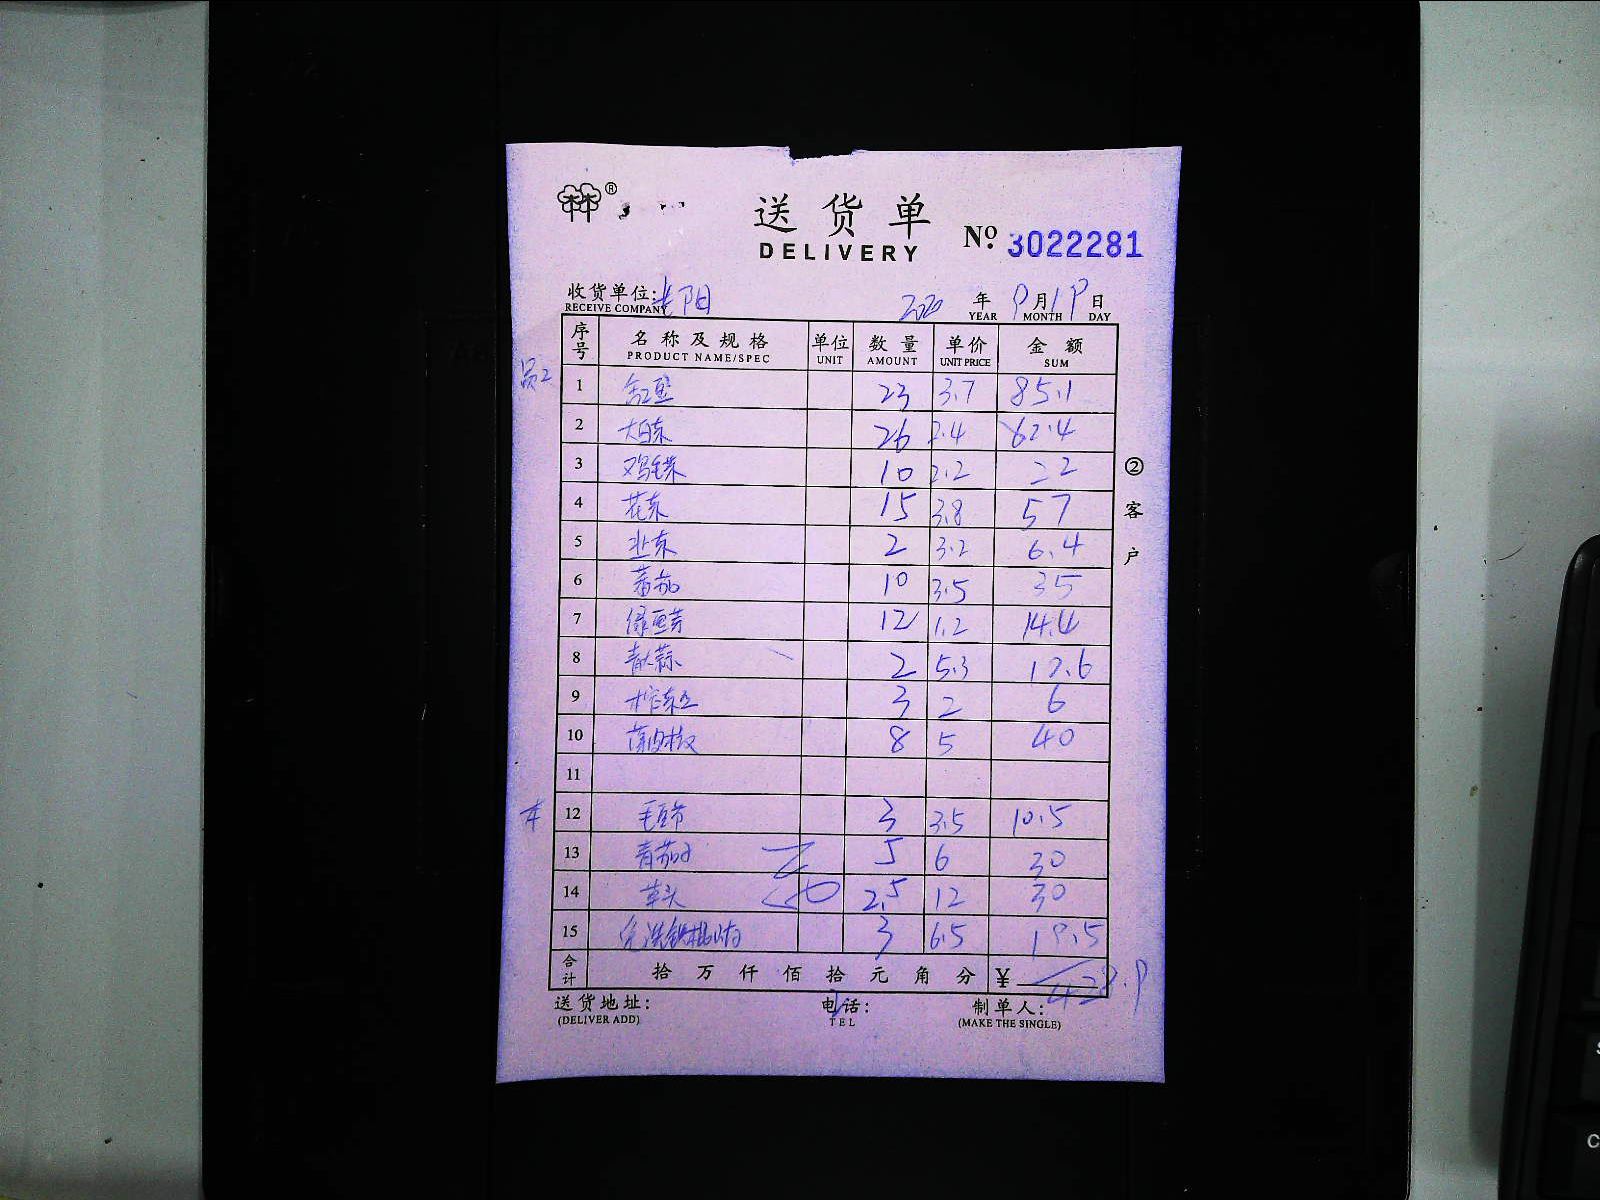 ®
送货单
DELIVERY
No. 3022281
收货单位:
RECEIVE COMPANY
2020 年 9 月 19 日
YEAR MONTH DAY
序号 名称及规格 单位 数量 单价 金额
PRODUCT NAME/SPEC UNIT AMOUNT UNIT PRICE SUM
员工
1 缸豆 23 3.7 85.1
2 大白菜 26 2.4 62.4
3 鸡毛菜 10 2.2 22
4 花菜 15 3.8 57
5 韭菜 2 3.2 6.4
6 蕃茄 10 3.5 35
7 绿豆芽 12 1.2 14.4
8 青大蒜 2 5.3 10.6
9 榨菜丝 3 2 6
10 8 5 40
11
12 毛豆节 3 3.5 10.5
13 青茄子 5 6 30
14 草头 2.5 12 30
15 免洗铁棍山药 3 6.5 19.5
合计 拾万仟佰拾元角分 ¥ 428.9
② 客户
送货地址:
(DELIVER ADD)
电话:
TEL
制单人:
(MAKE THE SINGLE)